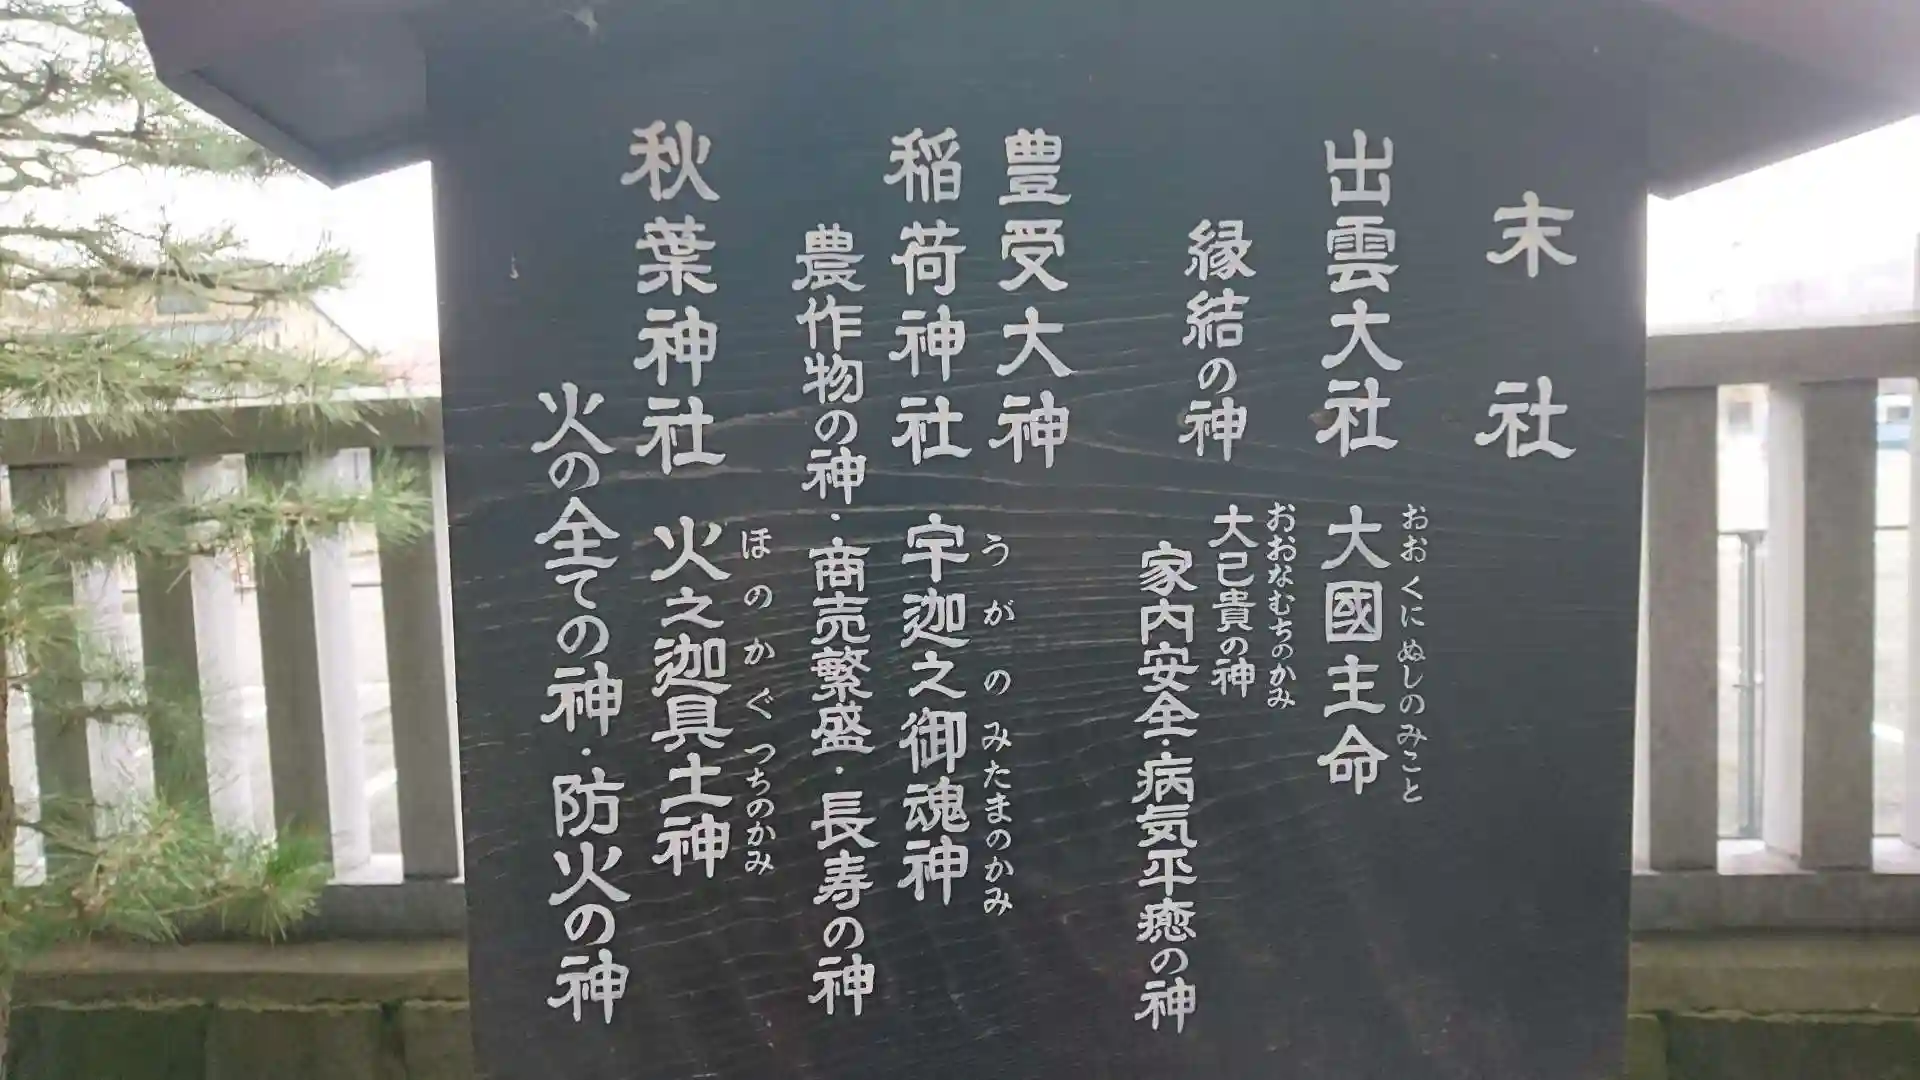 末社
出雲大社 大國主命
おおくにぬしのみこと
縁結の神 大己貴の神
おおなむちのかみ
家内安全・病気平癒の神
豊受大神
稲荷神社 宇迦之御魂神
うがのみたまのかみ
農作物の神・商売繁盛・長寿の神
秋葉神社 火之迦具土神
ほのかぐつちのかみ
火の全ての神・防火の神